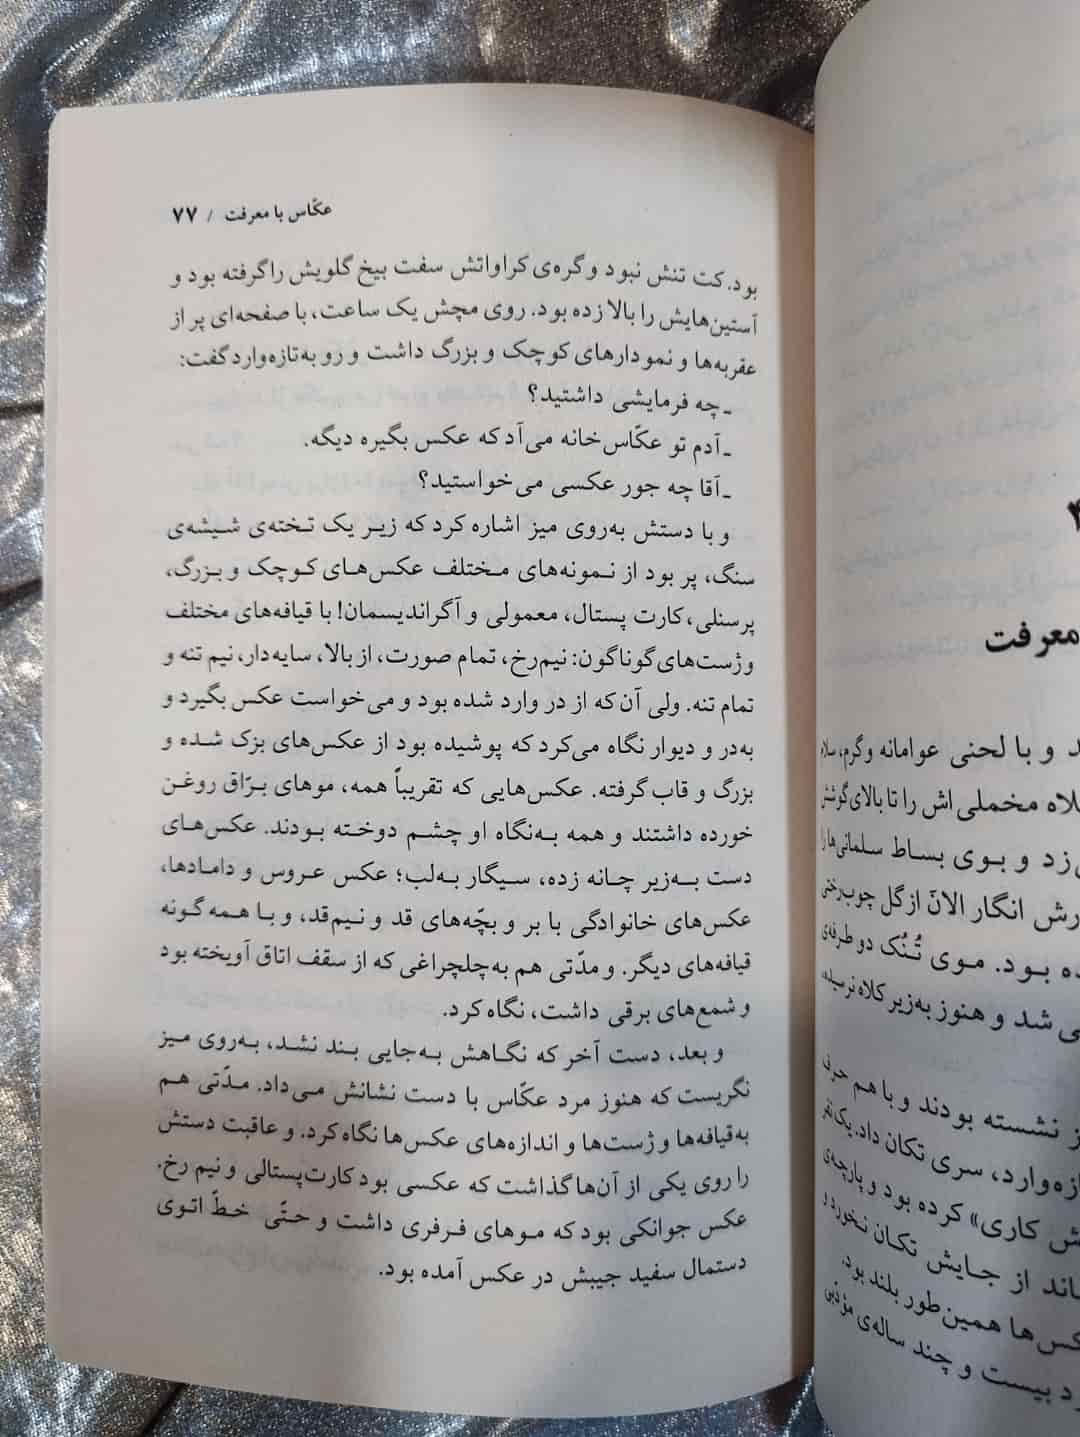 عکّاس با معرفت / ۷۷
بود. کت تنش نبود و گره‌ی کراواتش سفت بیخ گلویش را گرفته بود و
آستین‌هایش را بالا زده بود. روی مچش یک ساعت، با صفحه‌ای پر از
عقربه‌ها و نمودارهای کوچک و بزرگ داشت و رو به‌تازه‌وارد گفت:
ـ چه فرمایشی داشتید؟
ـ آدم تو عکّاس‌خانه می‌آد که عکس بگیره دیگه.
ـ آقا چه جور عکسی می‌خواستید؟
و با دستش به‌روی میز اشاره کرد که زیر یک تخته‌ی شیشه‌ی
سنگ، پر بود از نمونه‌های مختلف عکس‌های کوچک و بزرگ،
پرسنلی، کارت پستال، معمولی و آگراندیسمان! با قیافه‌های مختلف
و ژست‌های گوناگون: نیم‌رخ، تمام صورت، از بالا، سایه‌دار، نیم تنه و
تمام تنه. ولی آن‌که از در وارد شده بود و می‌خواست عکس بگیرد و
به‌در و دیوار نگاه می‌کرد که پوشیده بود از عکس‌های بزک شده و
بزرگ و قاب گرفته. عکس‌هایی که تقریباً همه، موهای برّاق روغن
خورده داشتند و همه به‌نگاه او چشم دوخته بودند. عکس‌های
دست به‌زیر چانه زده، سیگار به‌لب؛ عکس عروس و دامادها،
عکس‌های خانوادگی با بر و بچّه‌های قد و نیم‌قد، و با همه گونه
قیافه‌های دیگر. و مدّتی هم به‌چلچراغی که از سقف اتاق آویخته بود
و شمع‌های برقی داشت، نگاه کرد.
و بعد، دست آخر که نگاهش به‌جایی بند نشد، به‌روی میز
نگریست که هنوز مرد عکّاس با دست نشانش می‌داد. مدّتی هم
به‌قیافه‌ها و ژست‌ها و اندازه‌های عکس‌ها نگاه کرد. و عاقبت دستش
را روی یکی از آن‌ها گذاشت که عکسی بود کارت‌پستالی و نیم رخ.
عکس جوانکی بود که موهای فرفری داشت و حتّی خطّ اتوی
دستمال سفید جیبش در عکس آمده بود.
معرفت
و با لحنی عوامانه و گرم، سلام
مخملی‌اش را تا بالای گوشش
زد و بوی بساط سلمانی‌ها را
انگار الآن از گل چوب‌رختی
بود. موی تُنُک دو طرفه‌ی
شد و هنوز به‌زیر کلاه نرسیده
نشسته بودند و با هم حرف
سری تکان داد. یک نفر
کاری» کرده بود و پارچه‌ی
از جایش تکان نخورد و
همین‌طور بلند بود.
بیست و چند ساله‌ی مؤدّبی